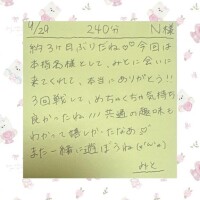 9/29 240分 N様
約3か月ぶりだね♡♡今回は
本指名様として、みとに会いに
来てくれて、本当にありがとう!!
3回戦して、めちゃくちゃ気持ち
良かったね///共通の趣味も
わかって嬉しかったなぁ♬
また一緒に遊ぼうね(๑'ڡ'๑)
みと